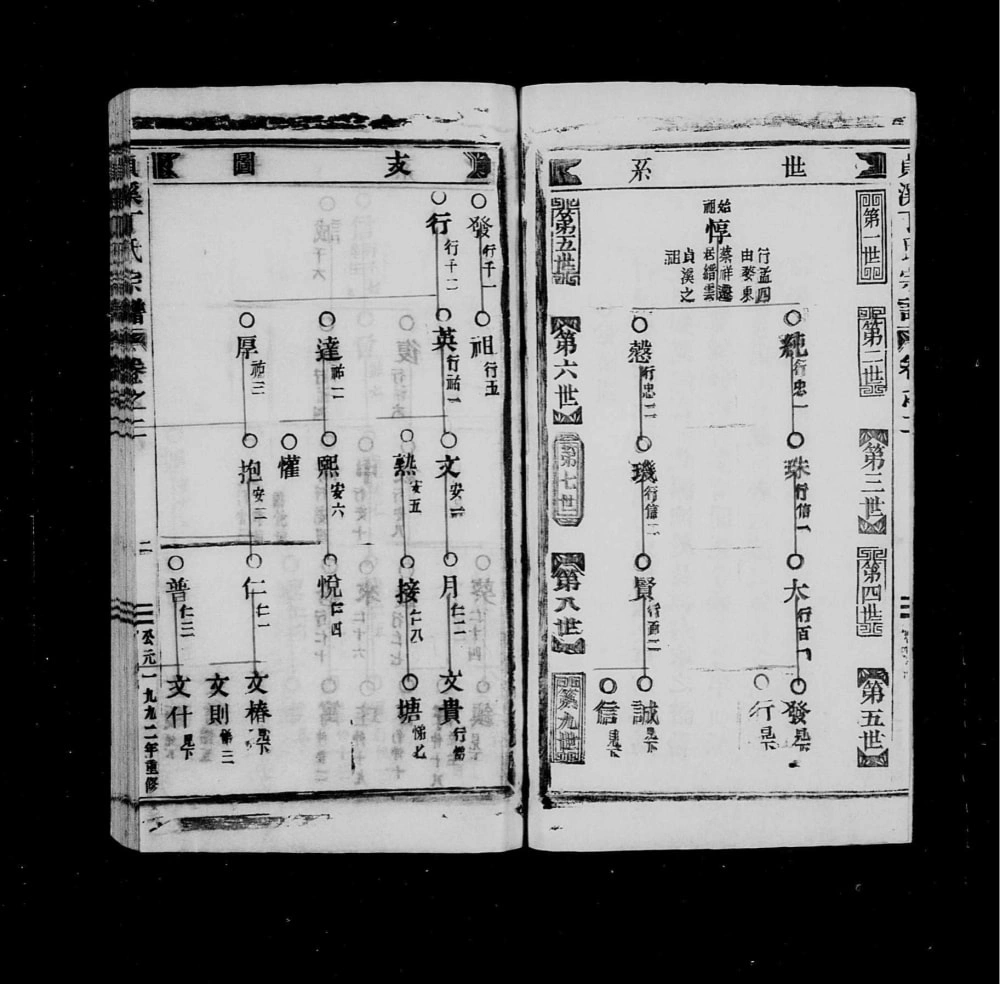 世系
第一世
第二世
第三世
第四世
第五世
始祖
惇
行孟四
由婺東
蔡祥遷
居縉雲
貞溪之
祖
純 行忠一
愨 行忠二
珠 行信一
璣 行信二
大 行百一
賢 行百二
發 見下
行 見下
誠 見下
信 見下
第五世
第六世
第七世
第八世
第九世
支圖
發 行千一
行 行千二
祖 行五
英 行祐一
達 祐二
厚 祐三
文 安一
熟 安五
熙 安六
懽
抱 安二
月 仁二
接 仁八
悅 仁四
仁 仁一
普 仁三
文貴 行
塘
文椿 見下
文則
文什 見下
貞溪丁氏宗譜 卷之二
二
公元一九九二年重修